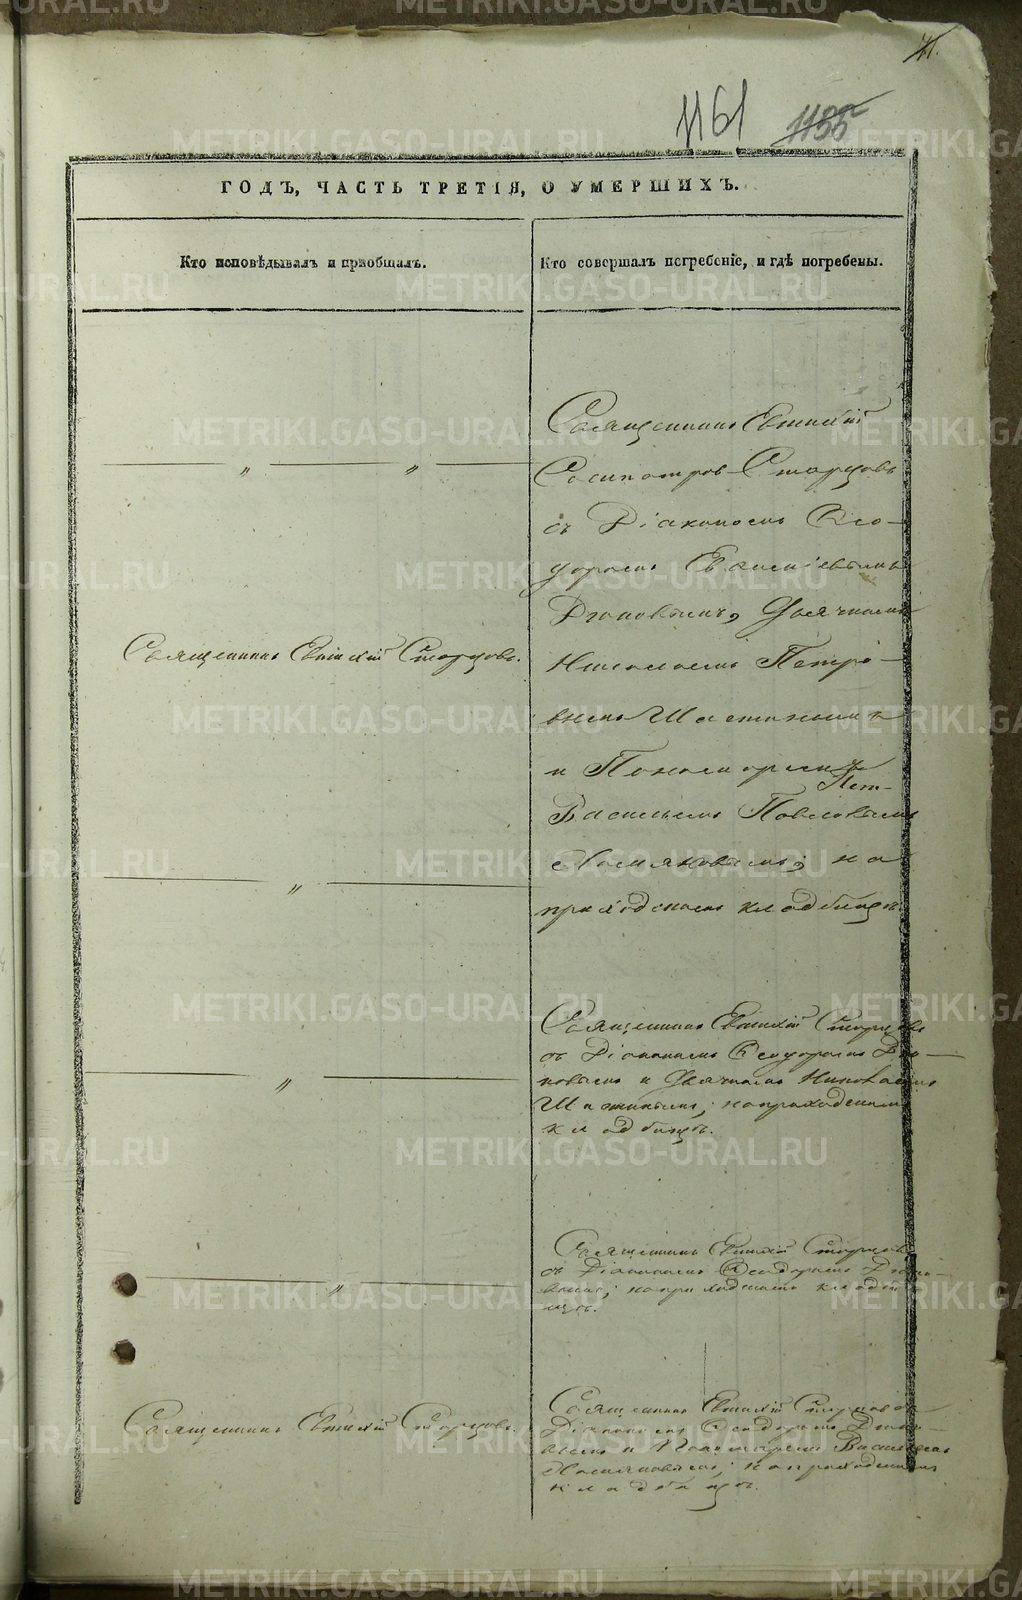 71.
1161 1155
ГОДЪ, ЧАСТЬ ТРЕТІЯ, О УМЕРШИХЪ.
Кто исповѣдывалъ и пріобщалъ.
Кто совершалъ погребеніе, и гдѣ погребены.
Священникъ Евтихій
Сосипатров Старцовъ
съ Діакономъ Ѳео-
доромъ Евгеніевымъ
Дьячкомъ
Николаемъ Петро-
вымъ Шастинымъ
и Пономаремъ
Васильемъ Павловымъ
Хомяковымъ; на
приходскомъ кладбищѣ.
Священникъ Евтихій Старцовъ.
Священникъ Евтихій Старцовъ
съ Діакономъ Ѳеодоромъ
и Дьячкомъ Николаемъ
Шастинымъ; на приходскомъ
кладбищѣ.
Священникъ Евтихій Старцовъ
съ Діакономъ Ѳеодоромъ
на приходскомъ кладби
щѣ.
Священникъ Евтихій Старцовъ.
Священникъ Евтихій Старцовъ съ
Діакономъ Ѳеодоромъ
и Пономаремъ Васильемъ
Хомяковымъ; на приходскомъ
кладбищѣ.
METRIKI.GASO-URAL.RU